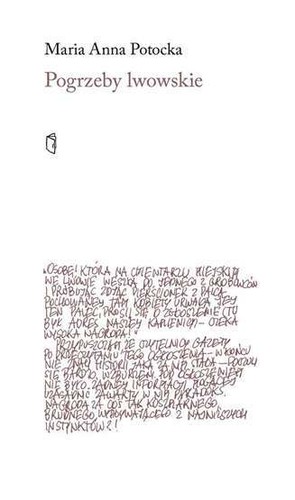 Maria Anna Potocka
Pogrzeby lwowskie
"OSOBĘ, KTÓRA NA CMENTARZU MIEJSKIM
WE LWOWIE WESZŁA DO JEDNEGO Z GROBOWCÓW
I PRÓBUJĄC ZDJĄĆ PIERŚCIONEK Z PALCA
POCHOWANEJ TAM KOBIETY URWAŁA JEJ
TEN PALEC, PROSI SIĘ O ZGŁOSZENIE (TU
BYŁ ADRES NASZEJ KAMIENICY) – CZEKA
WYSOKA NAGRODA!"
PRZYPUSZCZAM, ŻE CZYTELNICY GAZETY
PO PRZECZYTANIU TEGO OGŁOSZENIA – W KOŃCU
NIE ZNALI HISTORII JAKA ZA NIM STAŁA –
SIĘ BARDZO WZBURZENI. POD OGŁOSZENIEM
NIE BYŁO ŻADNEJ INFORMACJI
ZAWARTY W NIM PARADOKS.
NAGRODA ZA COŚ TAK KOSZMARNEGO,
BRUDNEGO, WYPŁYWAJĄCEGO Z NAJNIŻSZYCH
INSTYNKTÓW!